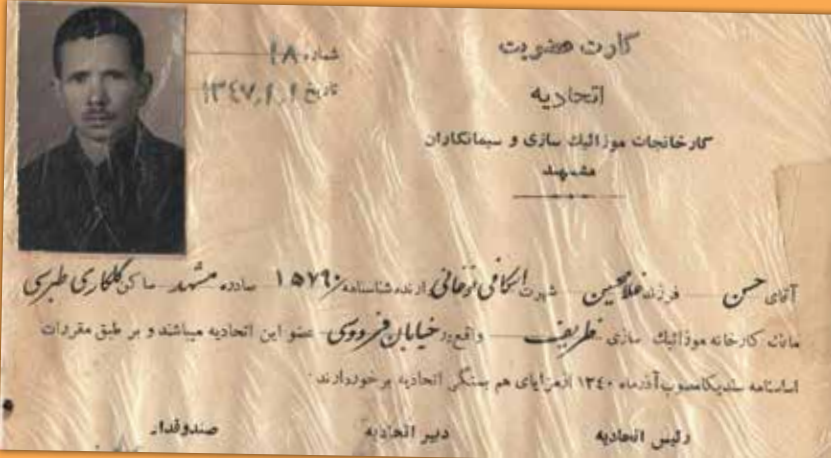 کارت عضویت
اتحادیه
کارخانجات موزائیك سازی و سیمانکاران
مشهد
شماره ۱۸
تاریخ ۱۳۴۷/۱/۱
آقای حسن فرزند غلامحسین شهرت اسکافی نوغانی دارنده شناسنامه ۱۵۷۶۰ صادره مشهد ساکن گلکاری طبرسی
مالك کارخانه موزائیك سازی ظریف واقع در خیابان فردوسی عضو این اتحادیه میباشند و بر طبق مقررات
اساسنامه سندیکا مصوب آذرماه ۱۳۴۰ از مزایای هم بستگی اتحادیه برخوردارند
رئیس اتحادیه دبیر اتحادیه صندوقدار